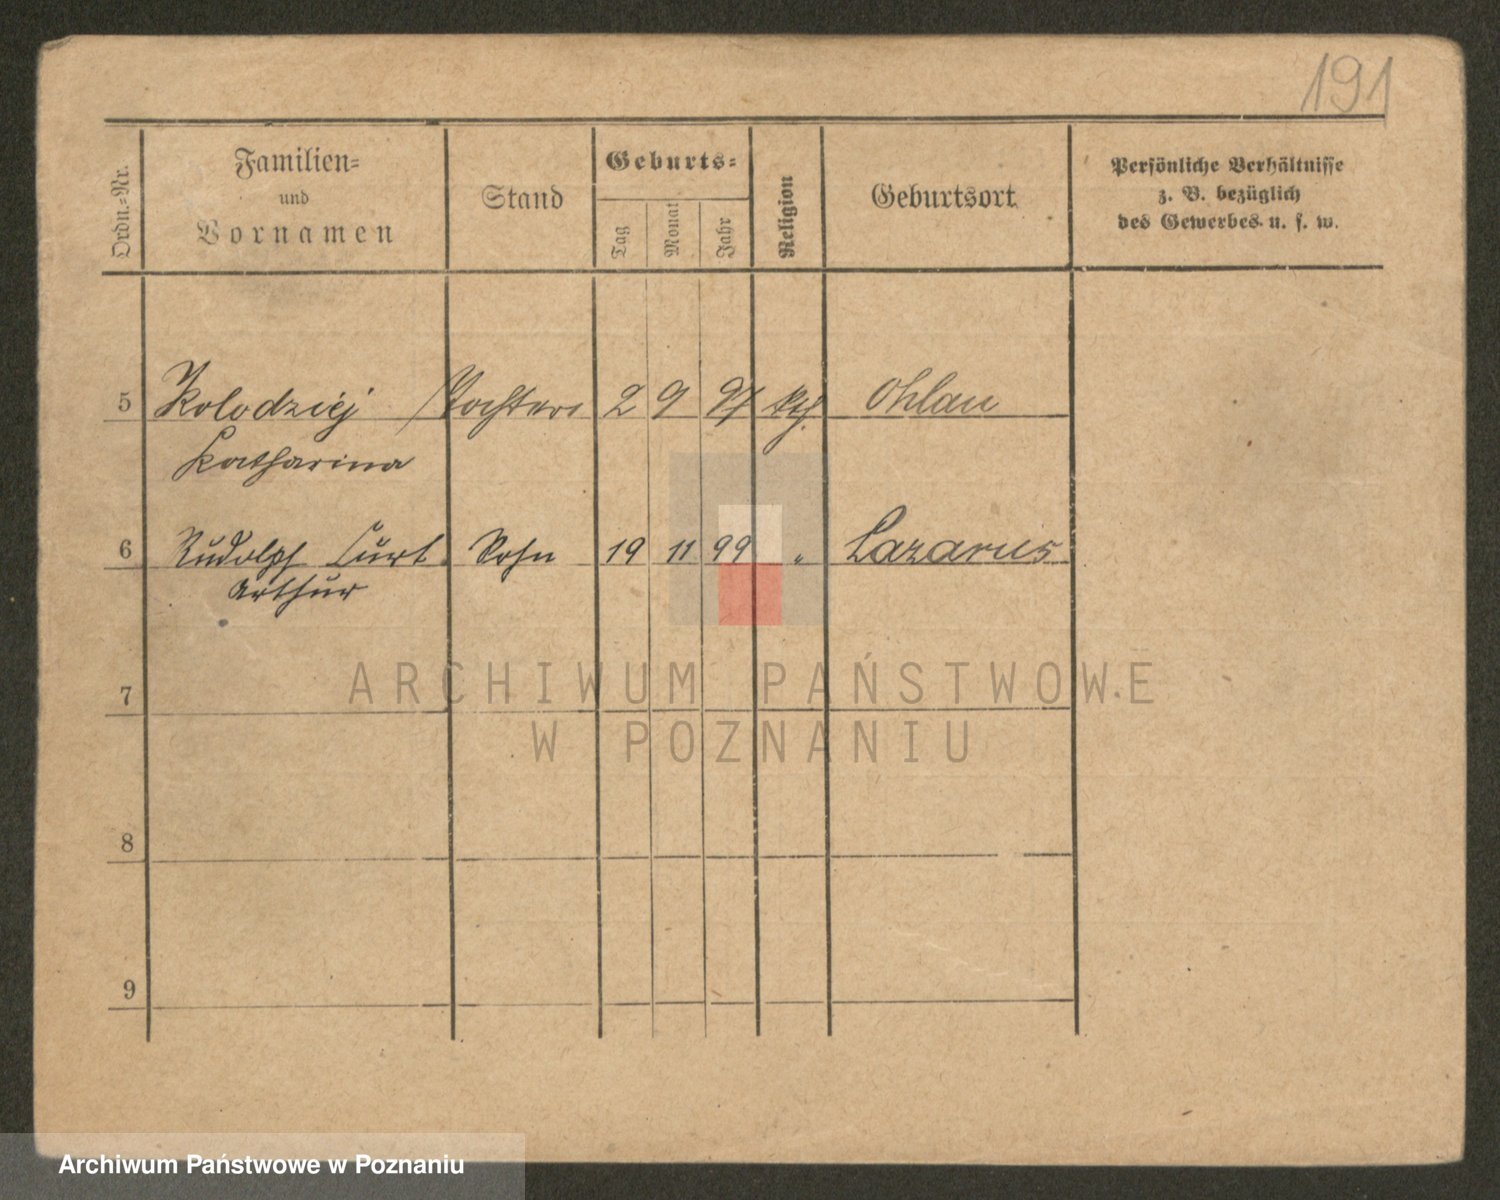 191
Ordn.-Nr.
Familien-
und
Vornamen
Stand
Geburts-
Tag
Monat
Jahr
Religion
Geburtsort
Persönliche Verhältnisse
z. B. bezüglich
des Gewerbes u. s. w.
5 Kolodziej 2 9 97 kth. Ohlau
Katharina
6 Rudolph Curt Sohn 19 11 99 " Lazarus
Arthur
7
8
9
ARCHIWUM PAŃSTWOWE
W POZNANIU
Archiwum Państwowe w Poznaniu